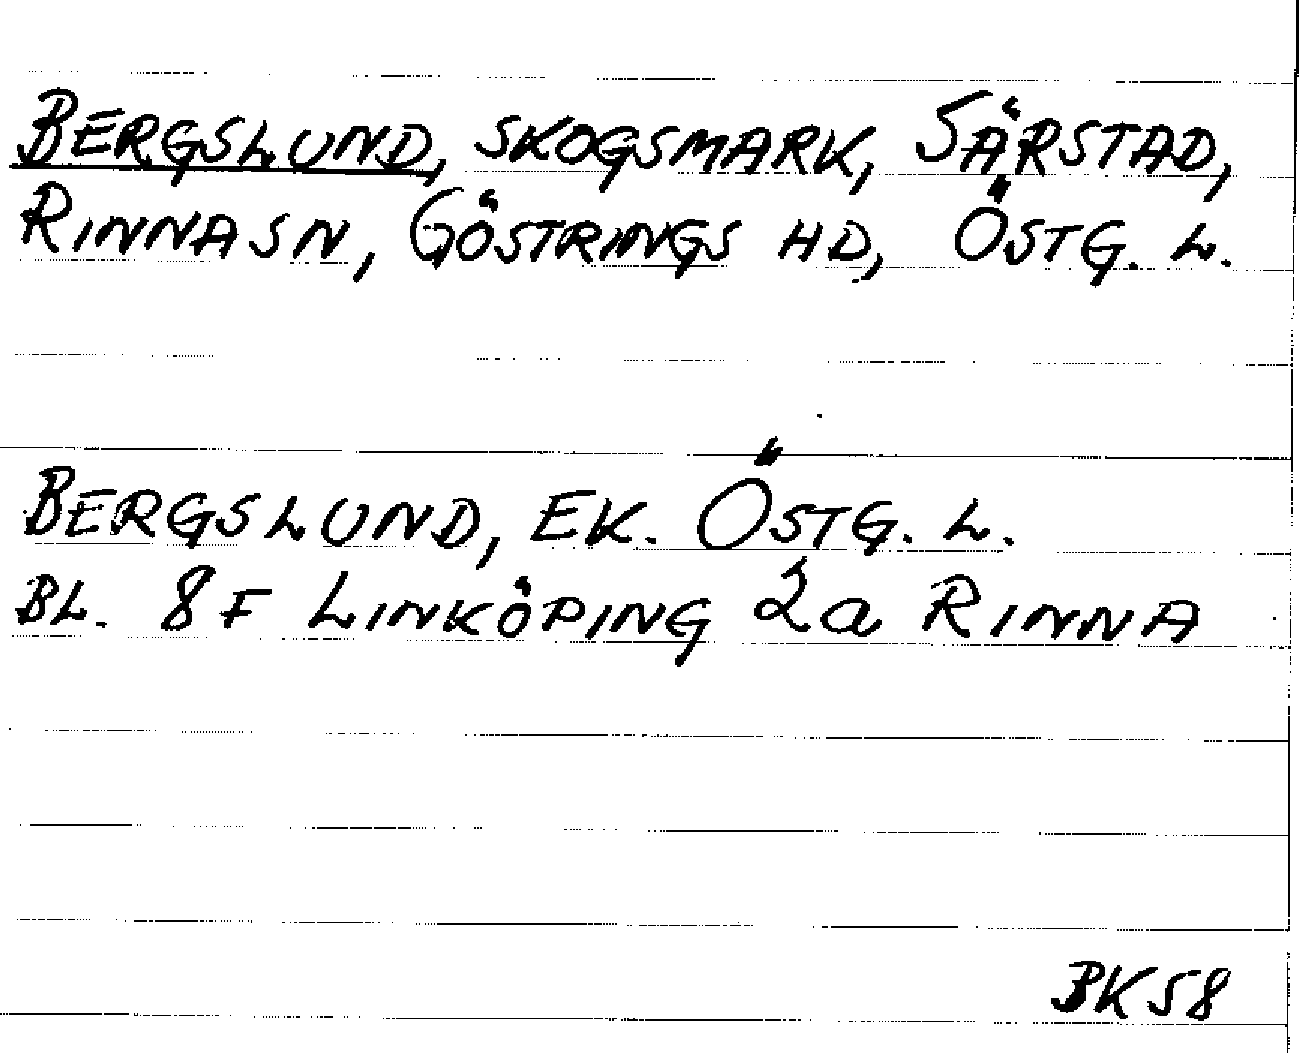 BERGSLUND, SKOGSMARK, SÄRSTAD,
RINNA SN, GÖSTRINGS HD, ÖSTG. L.
BERGSLUND, EK. ÖSTG. L.
BL. 8F LINKÖPING 2a RINNA
BK58